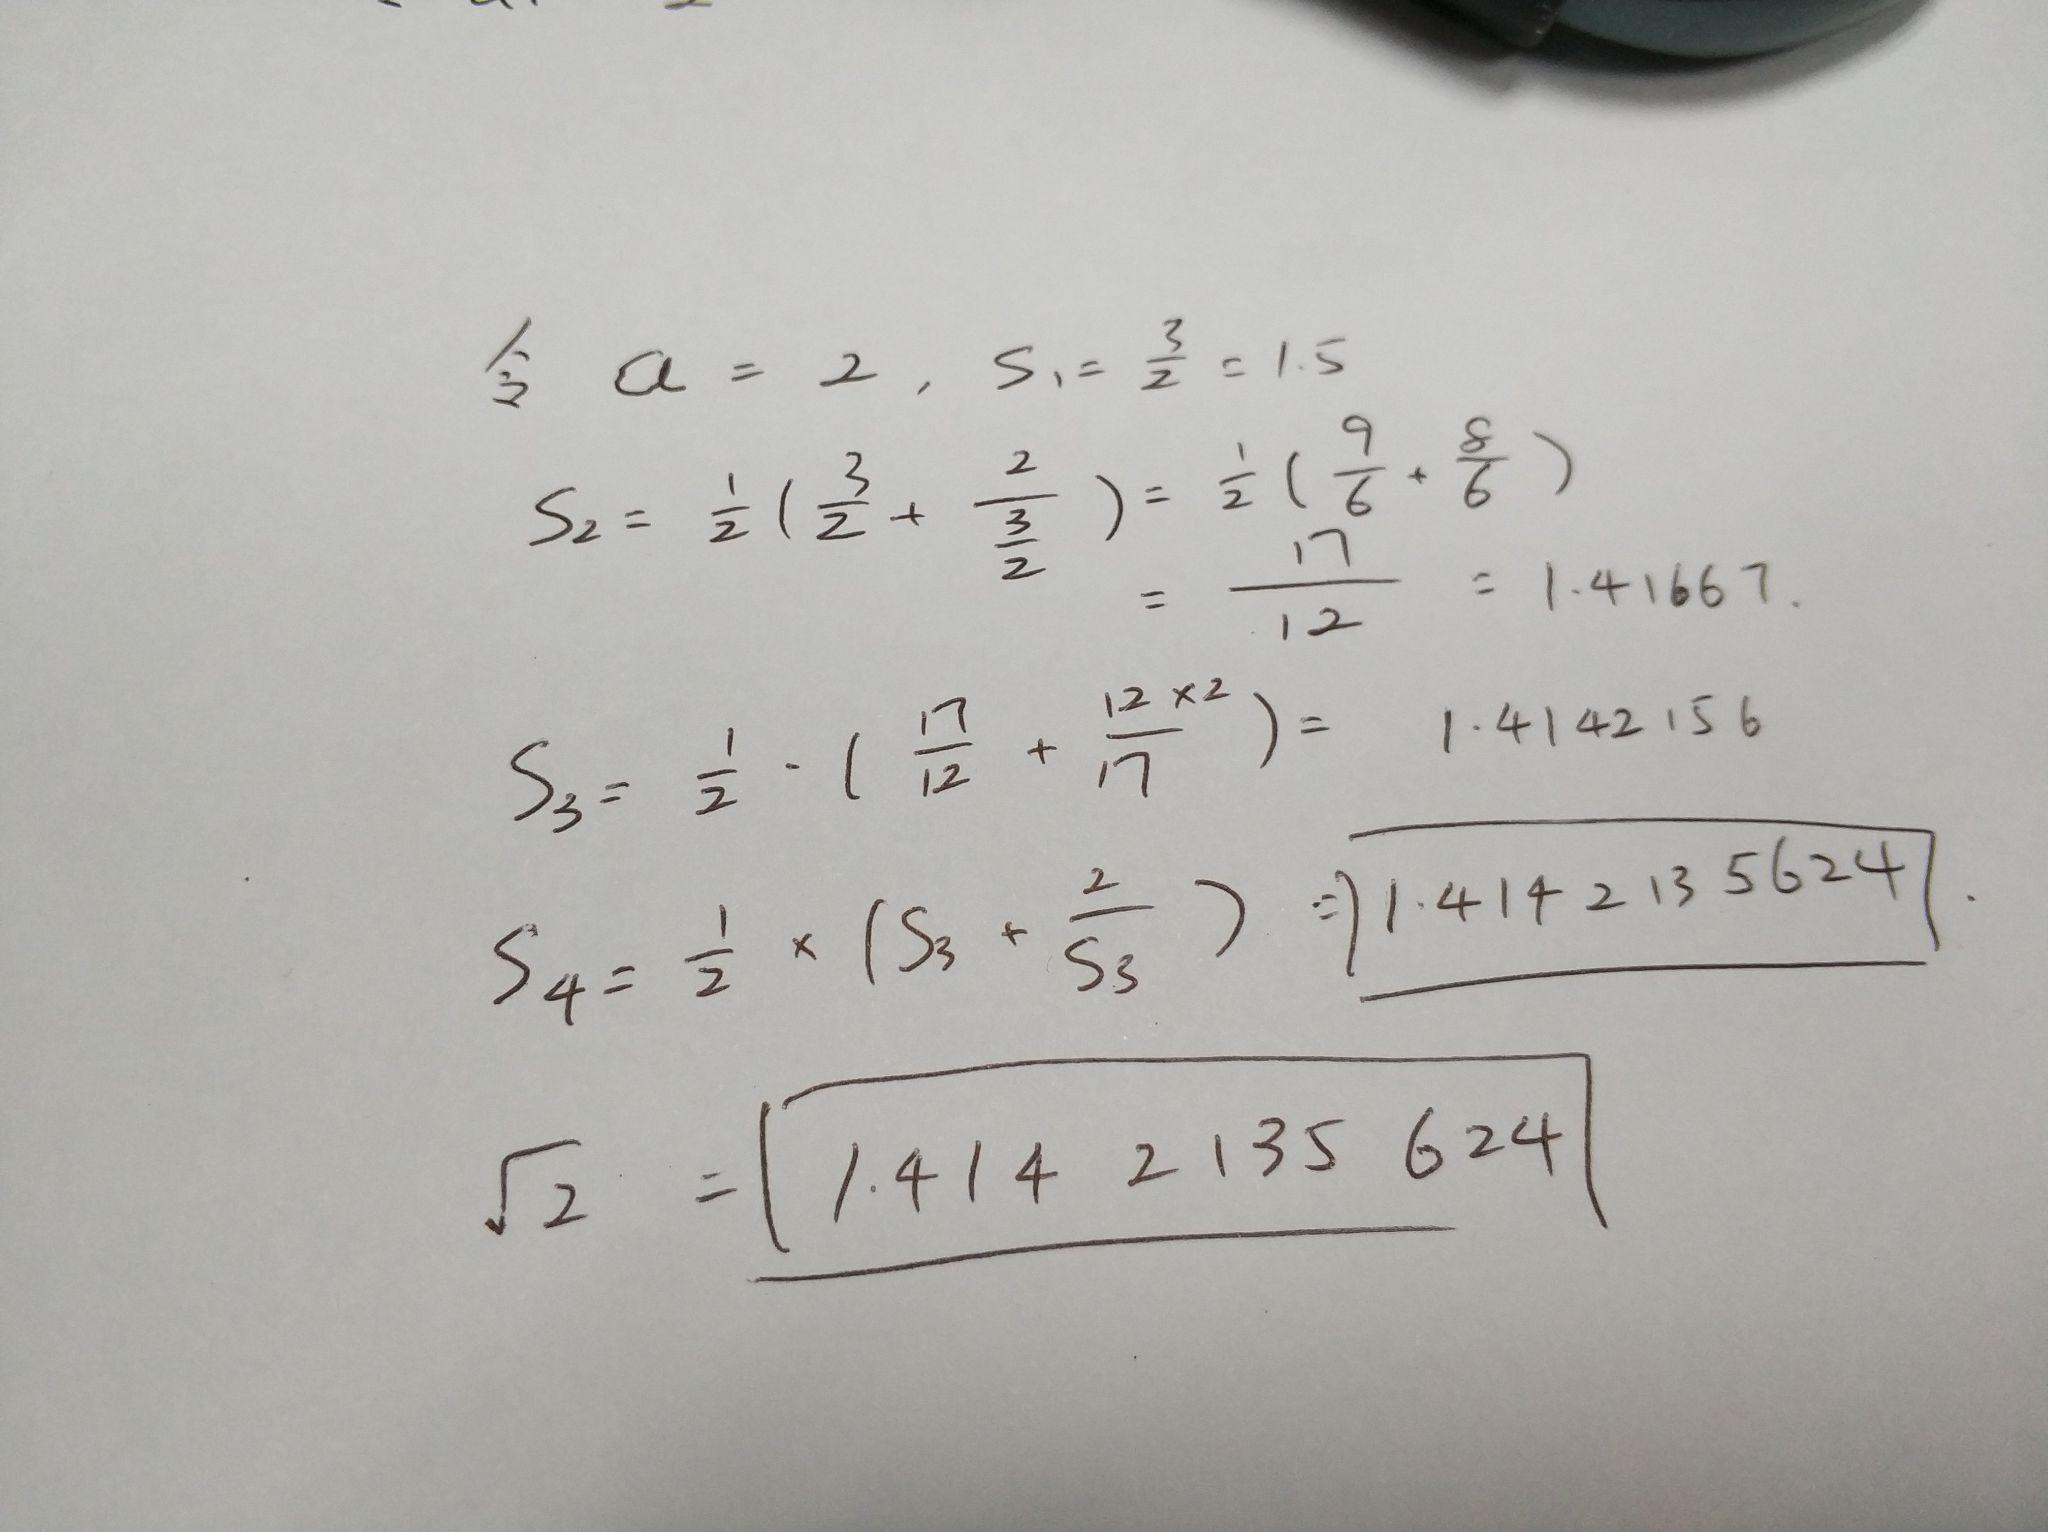 令 a = 2, S₁ = 3/2 = 1.5
S₂ = 1/2 (3/2 + 2/(3/2)) = 1/2 (9/6 + 8/6)
= 17/12 = 1.41667.
S₃ = 1/2 · (17/12 + 12×2/17) = 1.4142156
S₄ = 1/2 × (S₃ + 2/S₃) = 1.4142135624.
√2 = 1.4142135624